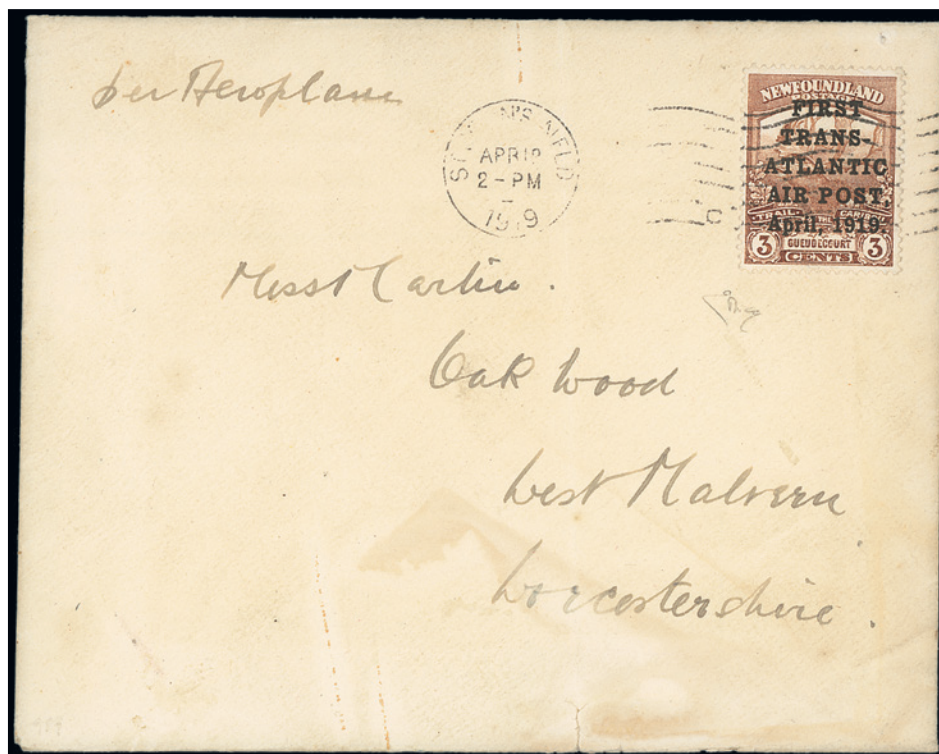 per Aeroplane
ST. JOHN'S NFLD
APR 12
2 - PM
1919
NEWFOUNDLAND
POSTAGE
FIRST
TRANS-
ATLANTIC
AIR POST,
April, 1919.
TRAIL OF THE CARIBOU
3 GUEUDECOURT 3
CENTS
Carlin.
Oak Wood
West Malvern
Worcestershire.